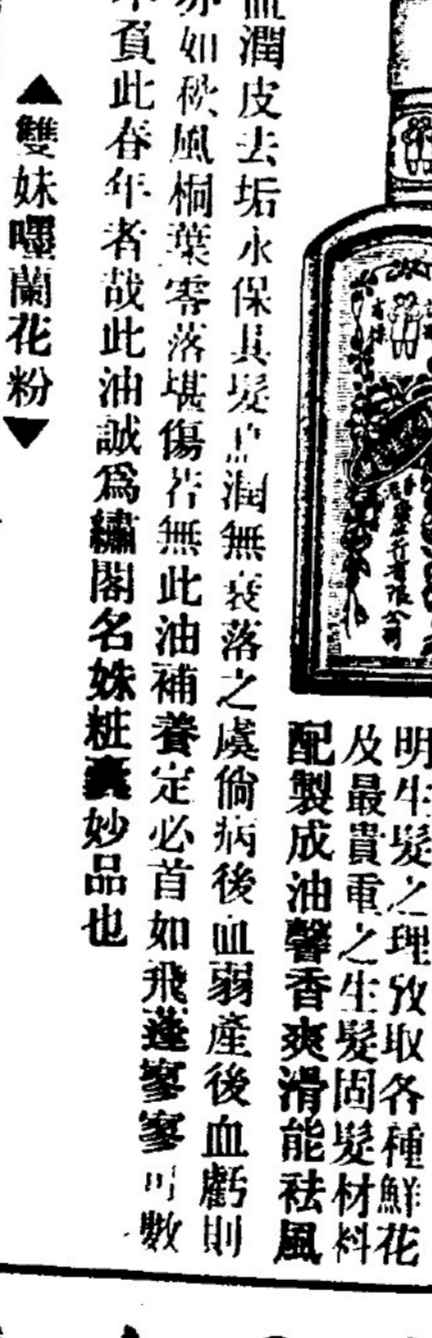 明生髮之理攷取各種鮮花
及最貴重之生髮固髮材料
配製成油馨香爽滑能祛風
血潤皮去垢永保其髮光潤無衰落之虞倘病後血弱產後血虧則
亦如秋風桐葉零落堪傷若無此油補養定必首如飛蓬寥寥可數
不負此春年者哉此油誠為繡閣名姝粧奩妙品也
▲雙妹嚜蘭花粉▼
行有限公司